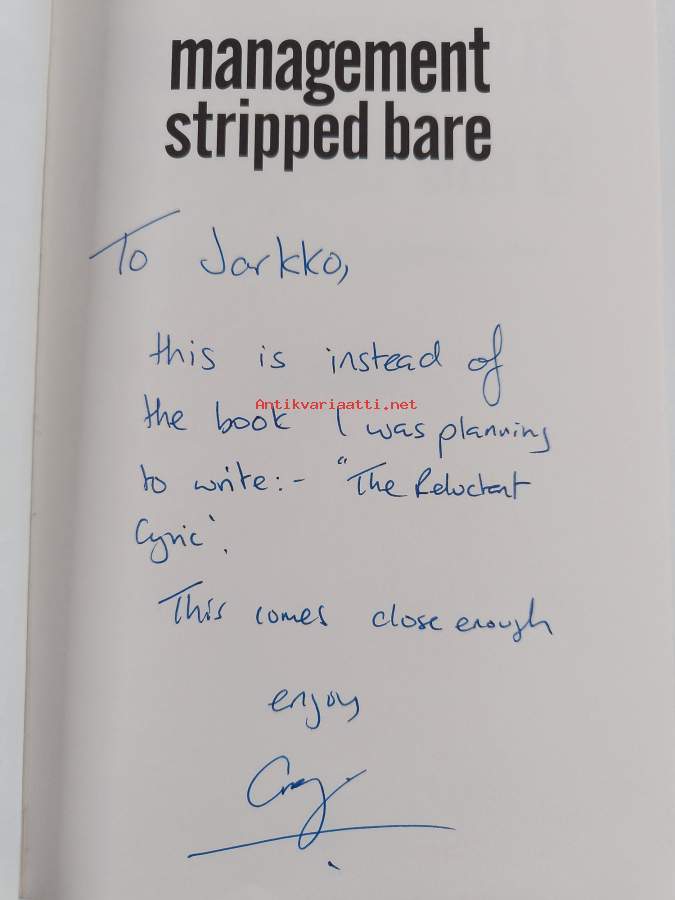 management
stripped bare
To Jarkko,
this is instead of
Antikvariaatti.net
the book I was planning
to write:- "The Reluctant
Cynic'.
This comes close enough
enjoy